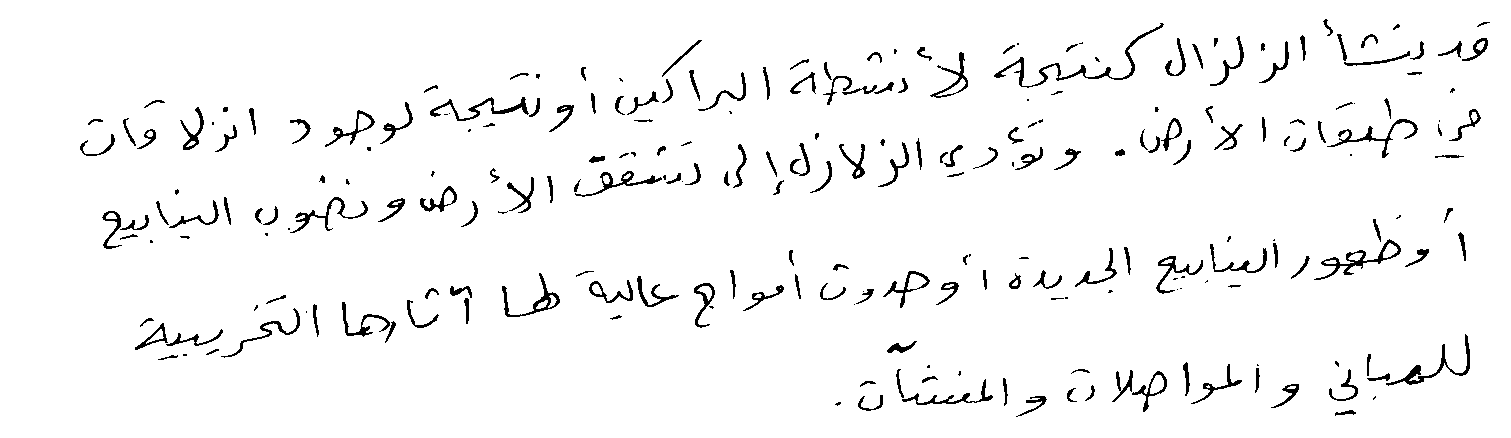 قد ينشأ الزلزال كنتيجة لأنشطة البراكين أو نتيجة لوجود انزلاقات
في طبقات الأرض. وتؤدي الزلازل إلى تشقق الأرض ونضوب الينابيع
أو ظهور الينابيع الجديدة أو حدوث أمواج عالية لها آثارها التخريبية
للمباني والمواصلات والمنشآت.